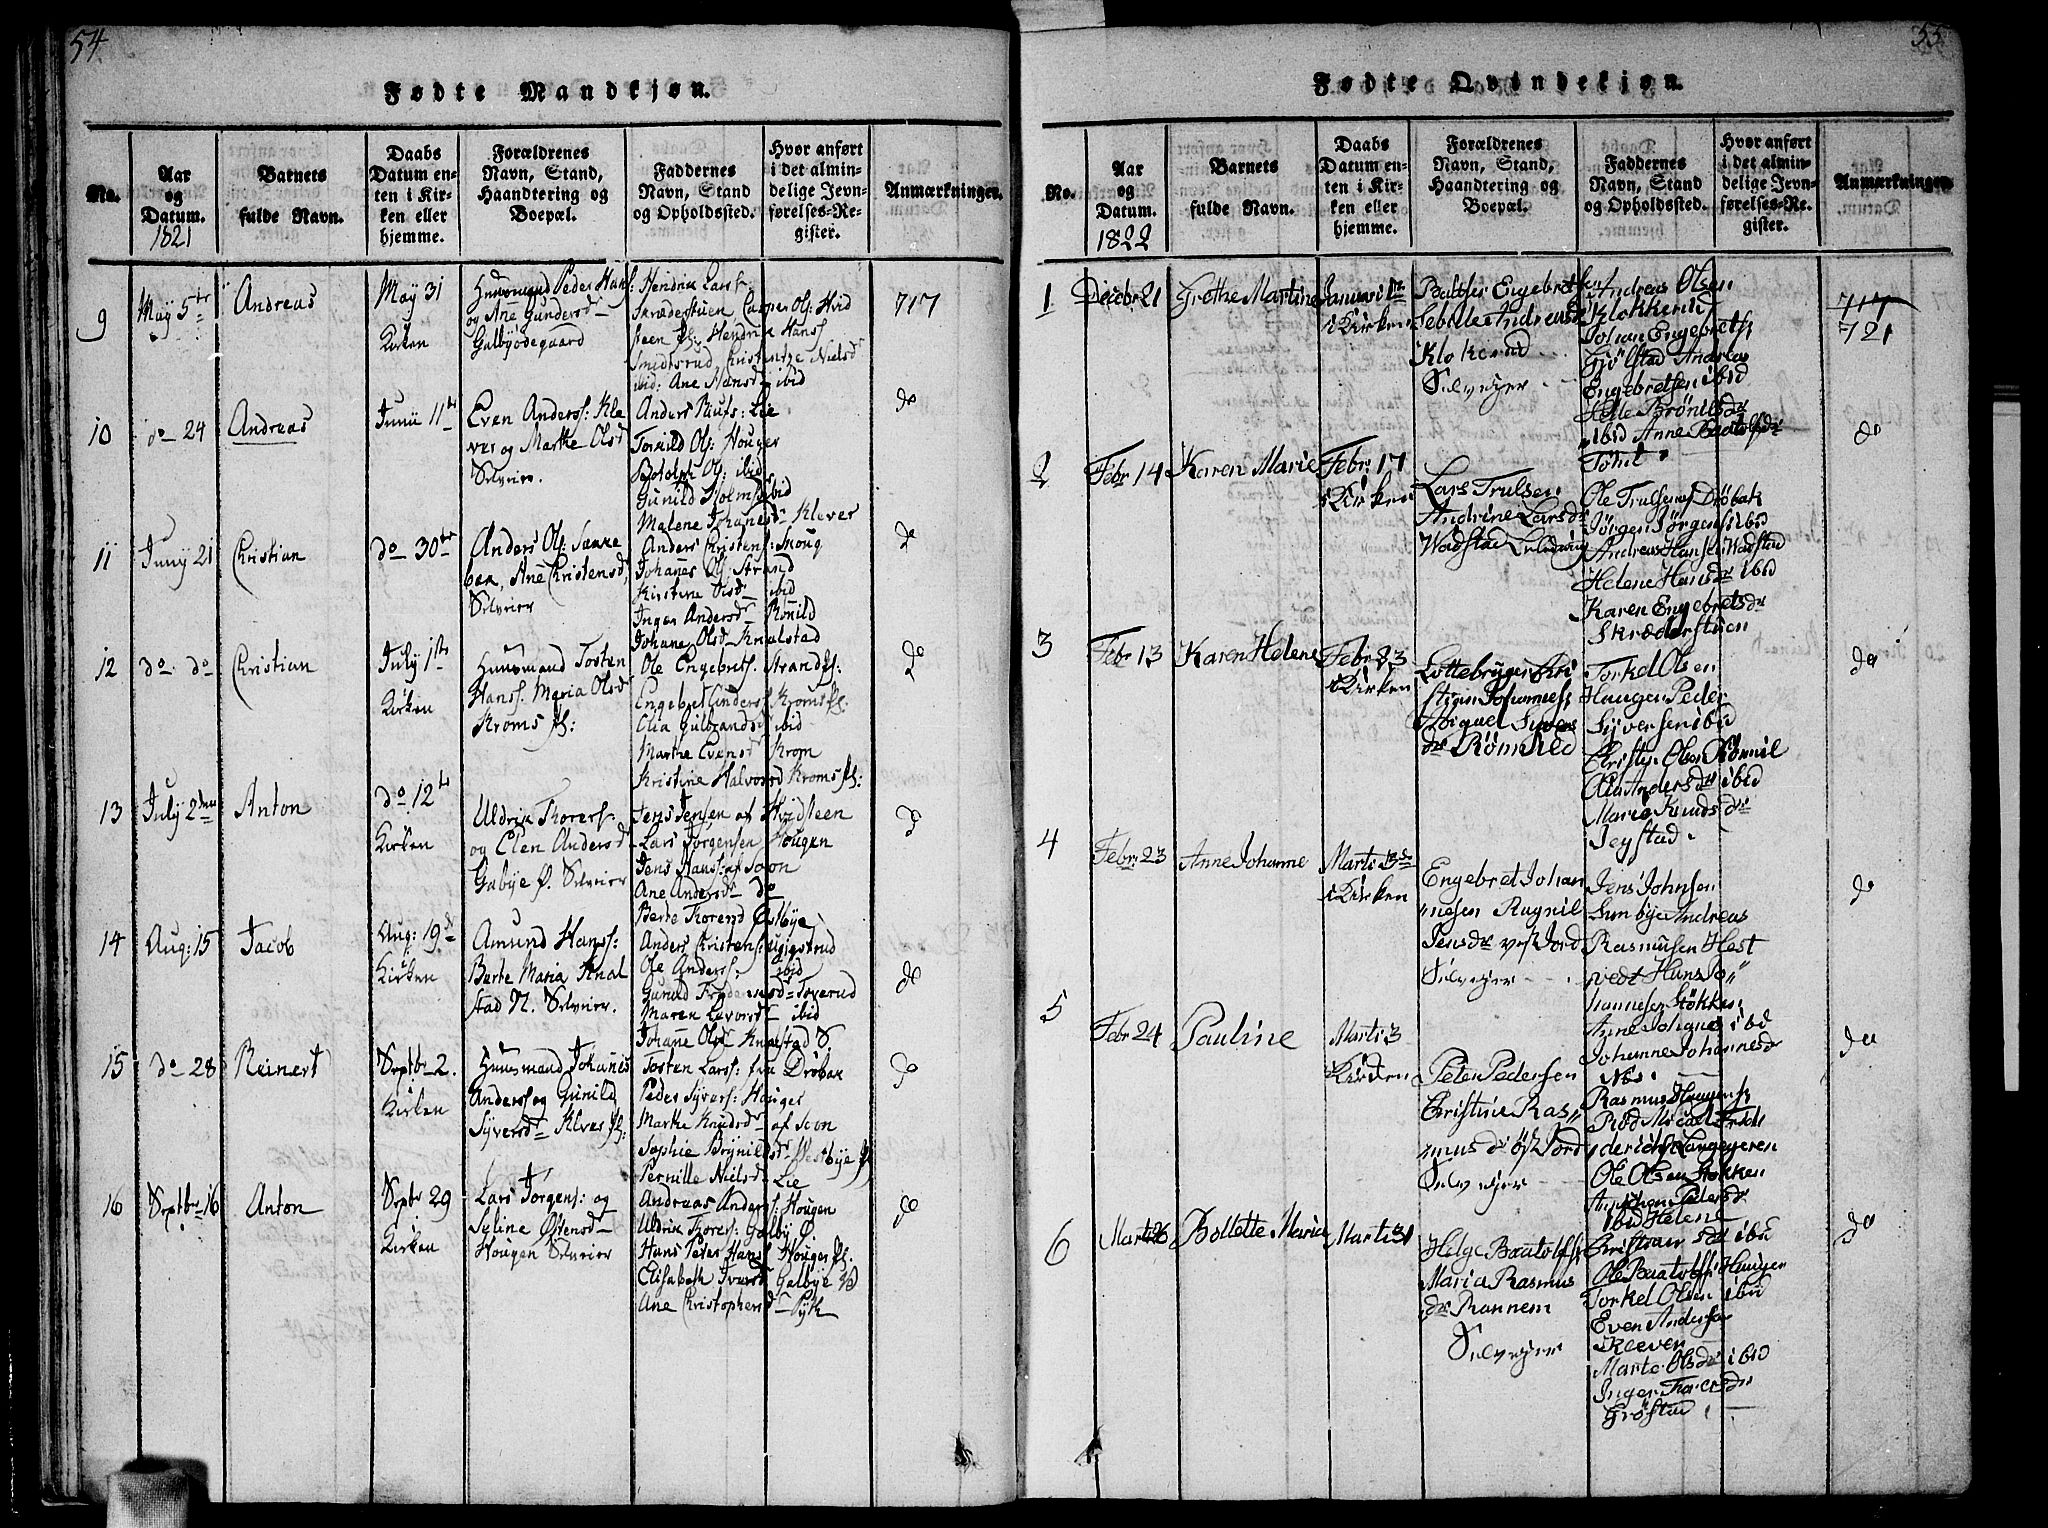 54
Fødte Mandkjøn.
No.
Aar
og
Datum.
1821
Barnets
fulde Navn.
Daabs
Datum en-
ten i Kir-
ken eller
hjemme.
Forældrenes
Navn, Stand,
Haandtering og
Boepæl.
Faddernes
Navn, Stand
og Opholdssted.
Hvor anført
i det almin-
delige Jevn-
førelses-Re-
gister.
Anmærkninger.
9
May 5te
Andreas
May 31
Kirken
Huusmand Peder Hans:
og Ane Gundersd
Galbyødegaard
Hendrik Lars:
Skrædestuen Casper Ol: Hvid
steen Hendrik Hans:
Smidtsrud Christentze Nielsd
ibid: Ane Hansd ibid
717
10
do 24
Andreas
Junii 11te
Even Anders: Kle
ver og Marthe Olsd
Selveier.
Anders Riufs: Lie
Torkild Ol: Houger
Botolph Ol: ibid
Gunild Holmsd ibid
Malene Johanesd Klever
do
11
Juny 21
Christian
do 30te
Anders Ol:
Ane Christensd,
Selveier
Anders Christens: Moug
Johanes Ol: Strand
Kirstine Olsd ibid
Inger Andersd Rönild
Johane Olsd Knalstad
do
12
do do
Christian
July 1ste
Kirken
Huusmand Tosten
Hans: Maria Olsd
Kroms
Ole Engebrets: Strand
Engebret Gunders: Kroms
Olia Gulbrandsd ibid
Marthe Evensd Krom
Kristine Halvorsd Kroms
do
13
July 2den
Anton
do 12te
Kirken
Uldrik Thorers:
og Elen Andersd
Galbye Ø. Selveier
Jens Jensen af Hvidsteen
Lars Jørgensen Hougen
Jens Hans: af Soon
Ane Andersd do
Berte Thorersd Østbye
do
14
Aug: 15
Jacob
Aug: 19de
Kirken
Amund Hans:
Berte Maria Knal
stad N. Selveier.
Anders Christens: 
Ole Anders: ibid
Gunild Toverud
Maren Levorsd ibid
Johane Olsd Knalstad S.
do
15
do 28
Reinert
Septbr 2.
Kirken
Huusmand Johanes
Anders: og Gunild
Syversd Klever
Tosten Lars: fra Drøbak
Peder Syvers: Houger
Marthe Knudsd af Soon
Sophie Brynildsd Westbye
Pernille Nielsd Lie
do
16
Septbr 16
Anton
Septbr 29
Kirken
Lars Jørgens: og
Syline Østensd
Hougen Selveier
Andreas Anders: Hougen
Uldrik Thores: Galby Ø
Hans Peder Hans: Houger
Elisabeth Iversd Galbye
Ane Christophersd Pytt
do
55
Fødte Qvindekjøn.
No.
Aar
og
Datum.
1822
Barnets
fulde Navn.
Daabs
Datum en-
ten i Kir-
ken eller
hjemme.
Forældrenes
Navn, Stand,
Haandtering og
Boepæl.
Faddernes
Navn, Stand
og Opholdssted.
Hvor anført
i det almin-
delige Jevn-
førelses-Re-
gister.
Anmærkninger.
1
Decebr 21
Grethe Martine
Januari 1st
i Kirken
Baltser Engebret
Sebille Andreasdr
Klokkerud
Selvejer
Andreas Olsen
Klokkerud
Johan Engebrets
Gjølstad Andreas
Engebretsen ibid
Helle Brönilsdr
ibid Anne Baatolfsdr
717
721
2
Febr 14
Karen Marie
Febr: 17
i Kirken
Lars Trulsen
Andrine Larsdr
Wadstad
Ole Trulsen af Dröbak
Jørgen Jörgens ibid
Andreas Hansen Wadstad
Helene Hansdr ibid
Karen Engebretsdr
Skræderstuen
do
3
Febr 13
Karen Helene
Febr: 23
i Kirken
Christian Johannes
Sivers
dr Römiled
Torkel Olsen
Haugen Peder
Syversen ibid
Olsen Römmil
Andersdr ibid
Marie Knudsdr
do
4
Febr: 23
Anne Johanne
Marti 3de
i Kirken
Engebret Johan
nesen Ragnil
Jensdr Jord
Selvejer
Jens Johnsen
Sundbye Andreas
Rasmusen Hest
vedt Hans Jo
hannesen Støkken
Anne Johanes ibd
Johanne Johannesdr
Næs.
do
5
Febr 24
Pauline
Marti 3
Kirken
Peter Pedersen
Christine Ras
musdr Jord
Selvejer
Rasmus Haagens
Röd Micael Fride
derichs Langegeren
Ole Olsen Støkken
Pedersdr
ibid Helene
Christians dr ibd
do
6
Marti 26
Bollette Maria
Marti 31
Helge Baatolfs
Maria Rasmus
dr Rannem
Selvejer
Ole Baatolfs Haugen
Torkel Olsen ibid
Even Anders
Kleven
Marte Olsdr ibid
Inger
do